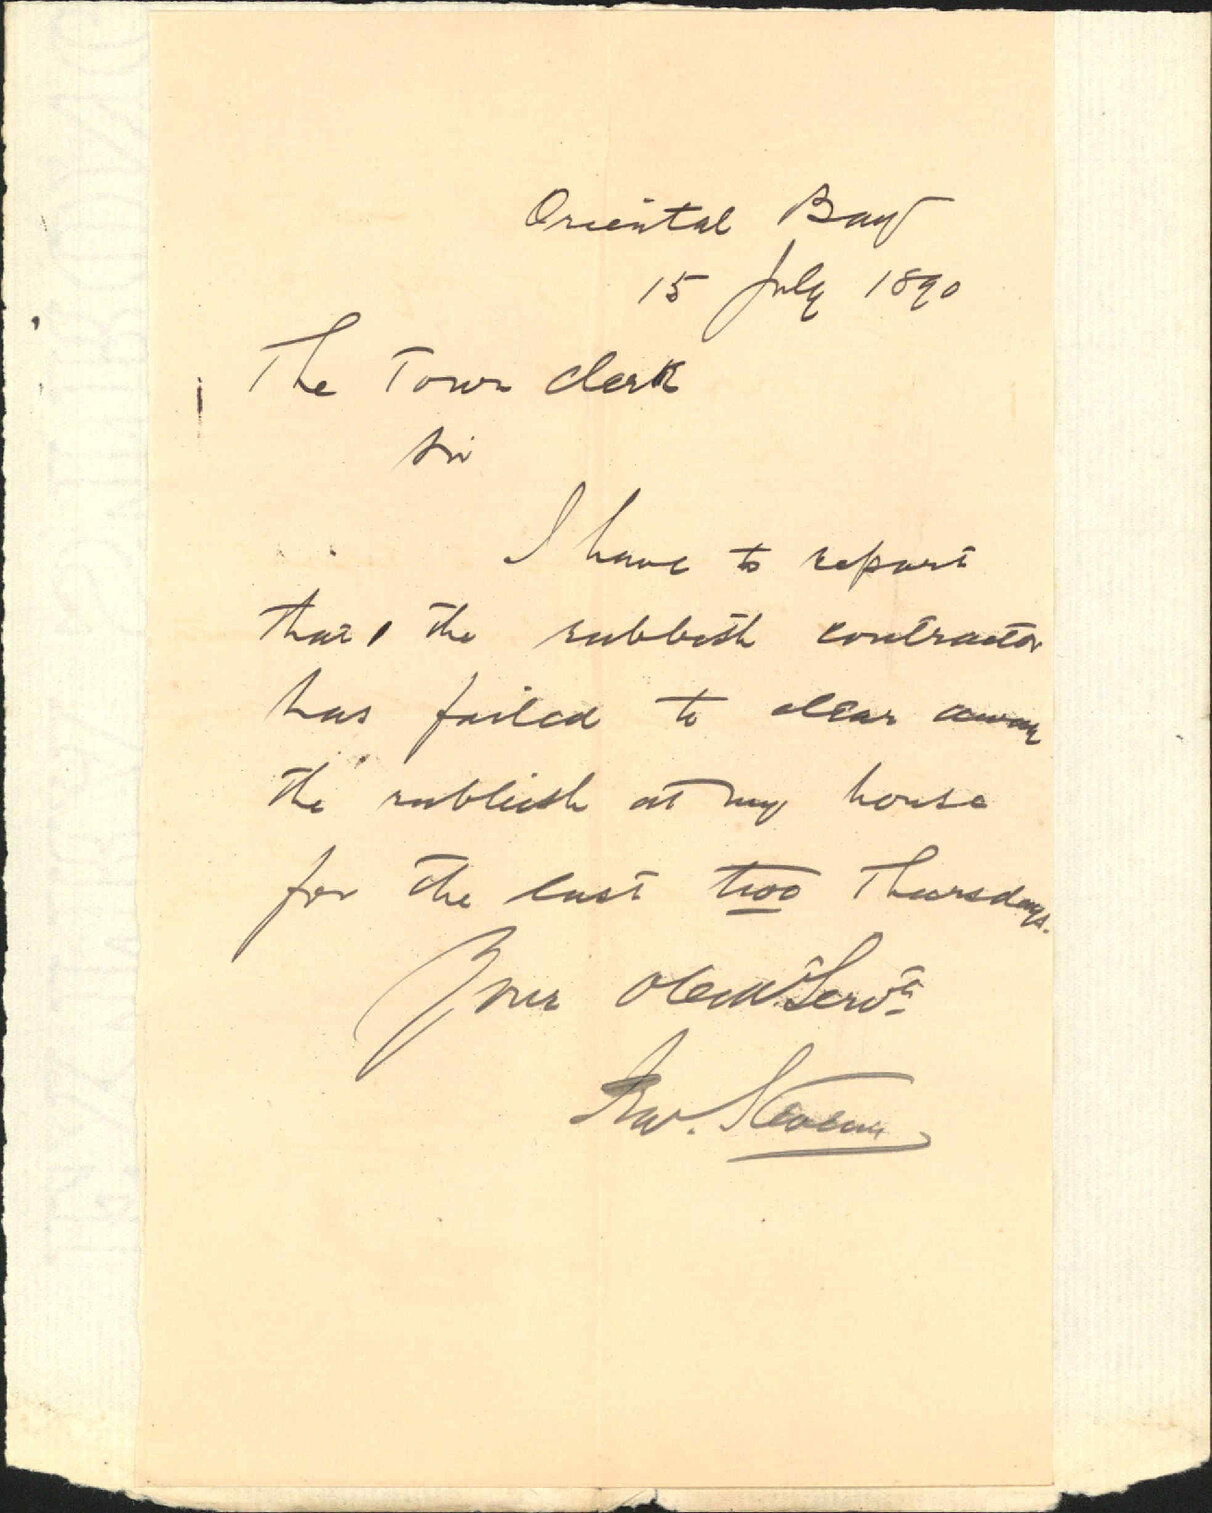 Oriental Bay
15 July 1890
The Town Clerk
Sir
I have to report
that, the rubbish contractor
has failed to clear away
the rubbish at my house
for the last two Thursdays.
Your Obedt Servt